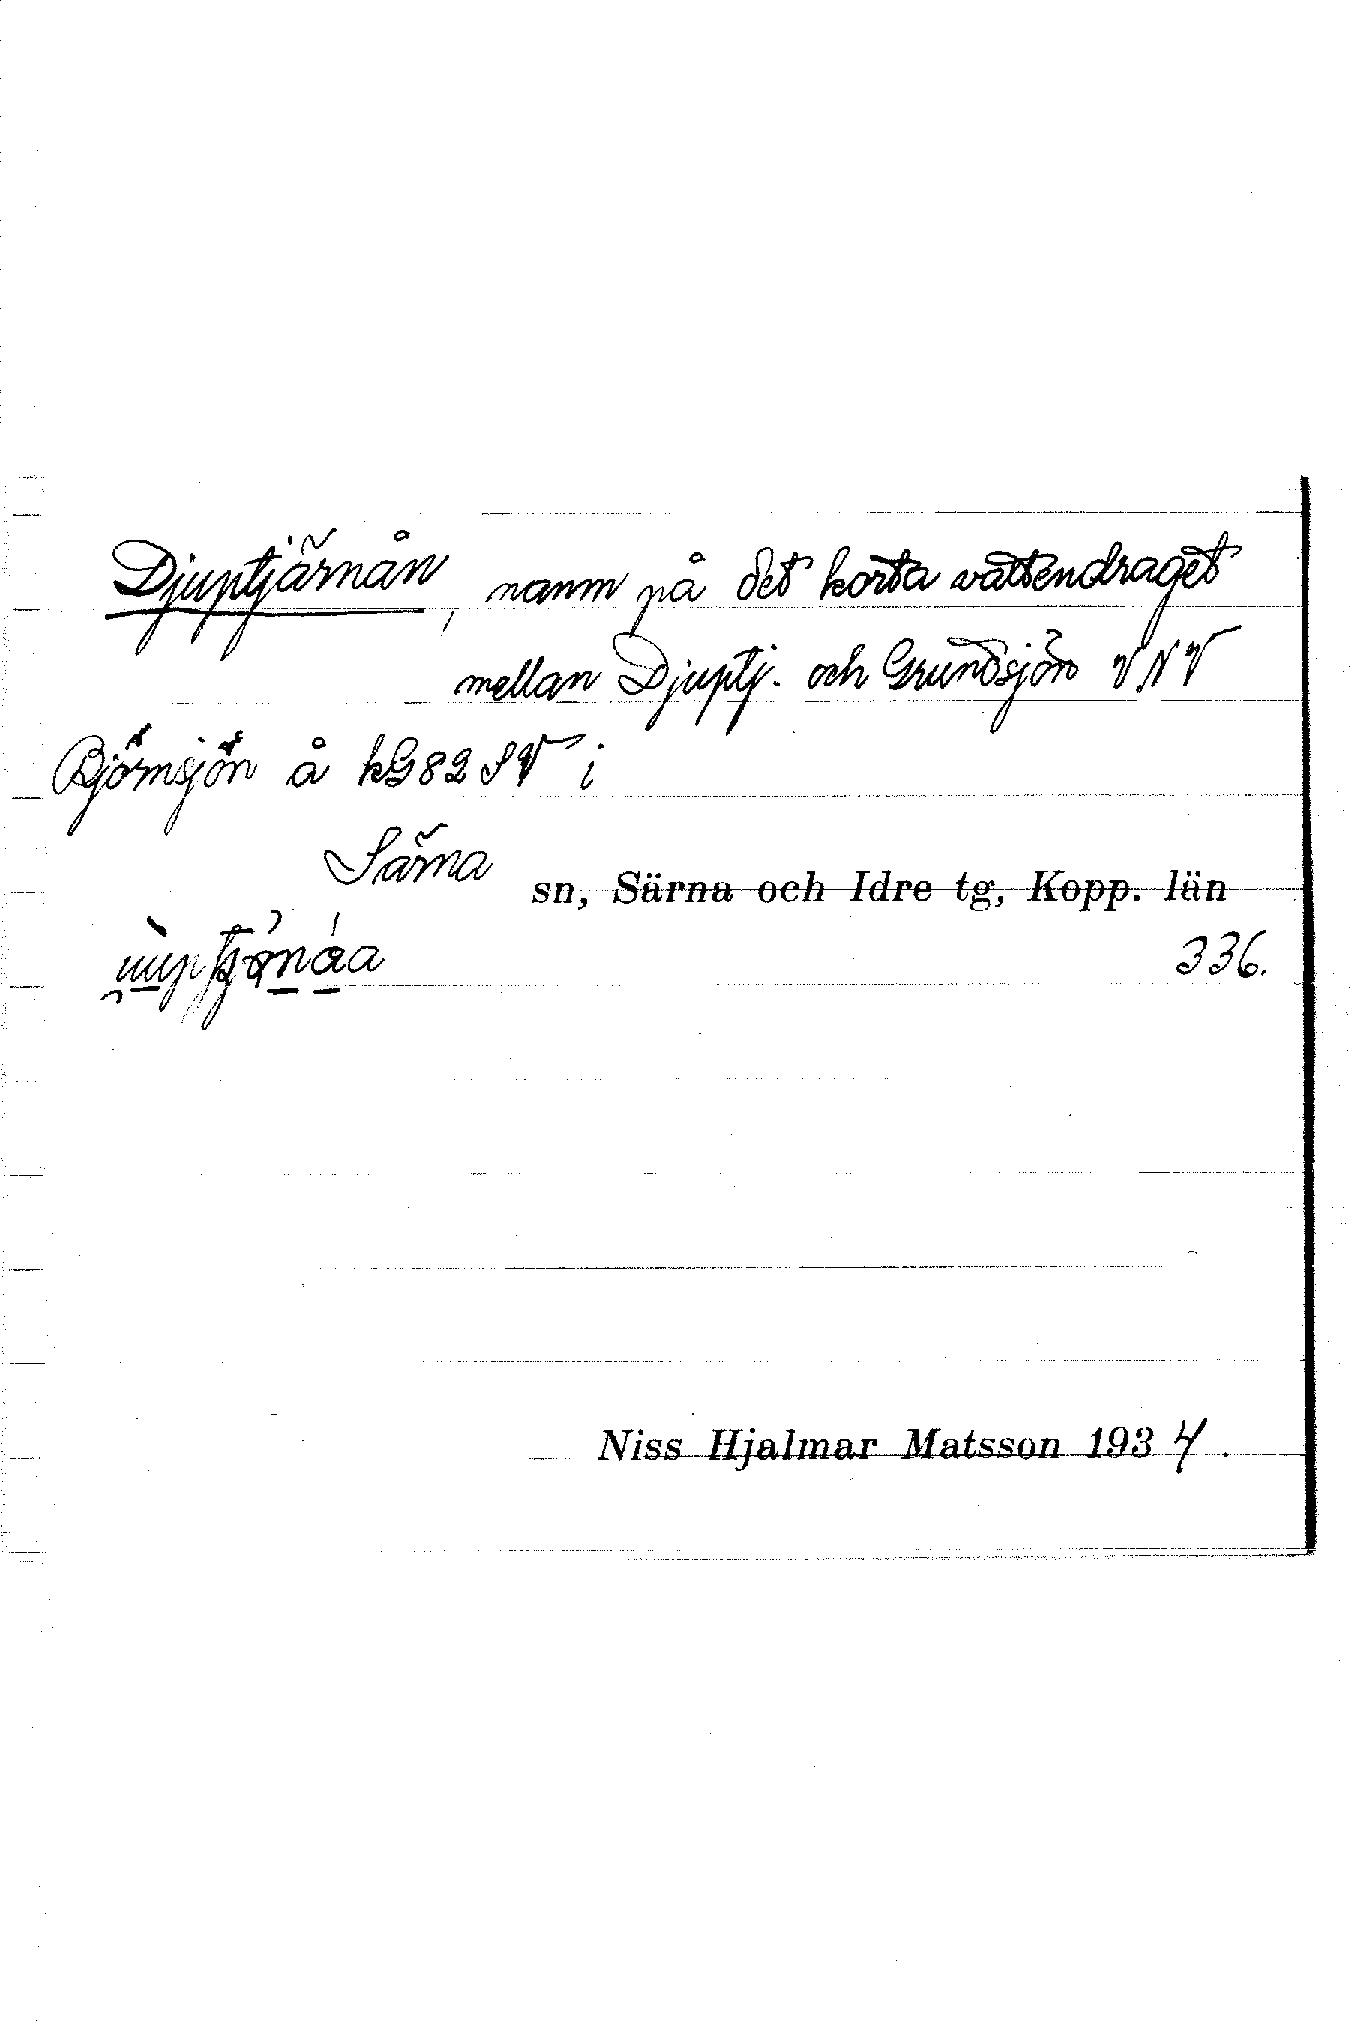 Djuptjärnån, namn på det korta vattendraget
mellan Djuptj. och Grundsjön VNV
Björnsjön å kG82SV i
Särna sn, Särna och Idre tg, Kopp. län
336.
Niss Hjalmar Matsson 1934.